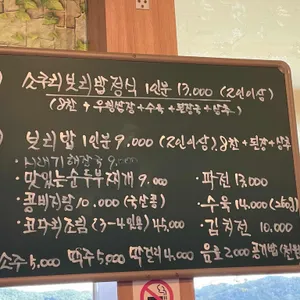 소쿠리 보리밥 정식 1인분 13,000 (2인이상)
(8찬 + 우렁쌈장 + 수육 + 된장국 + 쌈류)
보리밥 1인분 9,000 (2인이상) 8찬 + 된장 + 쌈류
· 시래기해장국 9,000
· 맛있는순두부찌개 9,000 · 파전 13,000
· 콩비지탕 10,000 (국산콩) · 수육 14,000 (260g)
· 코다리조림 (3-4인용) 45,000 · 김치전 10,000
소주 5,000 맥주 5,000 막걸리 4,000 음료 2,000 공기밥